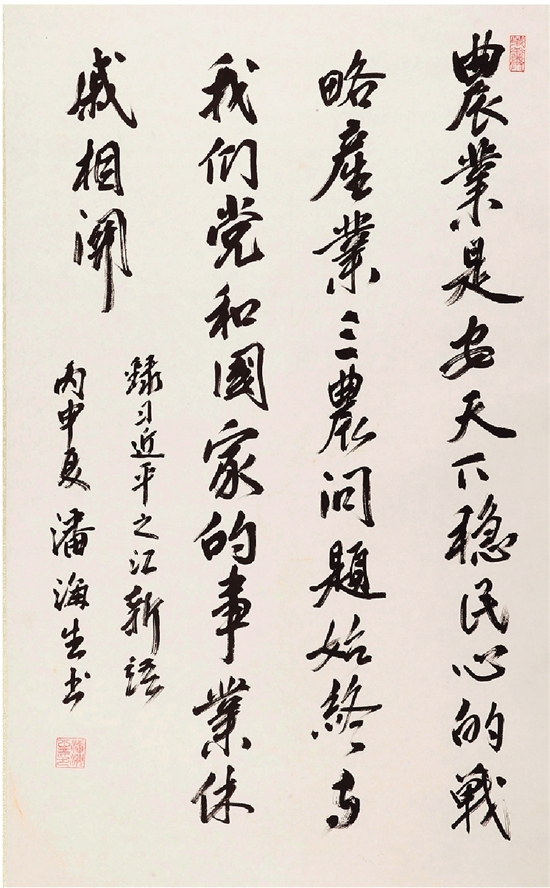 農業是安天下稳民心的戰
略產業三農问題始終与
我们党和國家的事業休
戚相関
録习近平之江新語
丙申夏潘海生书